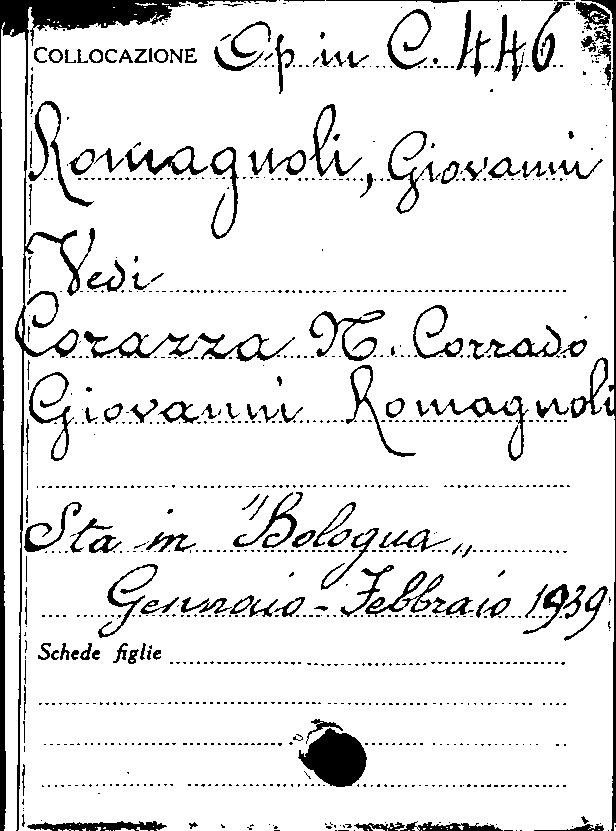 COLLOCAZIONE Op in C. 446
Romagnoli, Giovanni
Vedi
Corazza N. Corrado
Giovanni Romagnoli
Sta in "Bologna"
Gennaio-Febbraio 1939
Schede figlie